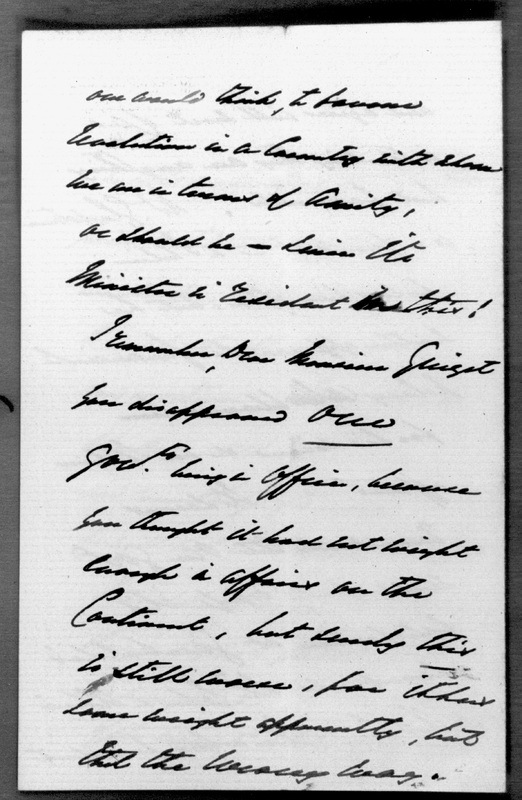 one would think, to favour
Revolution in a Country with whom
we are in terms of Amity,
or should be — since Its
Minister is Resident in this!
I remember, Dear Monsieur Guizot
you disapproved our
Govt. being in Office, because
you thought it had not weight
enough in affairs on the
Continent, but surely this
is still worse, for it has
some weight apparently, but
that the wrong way.